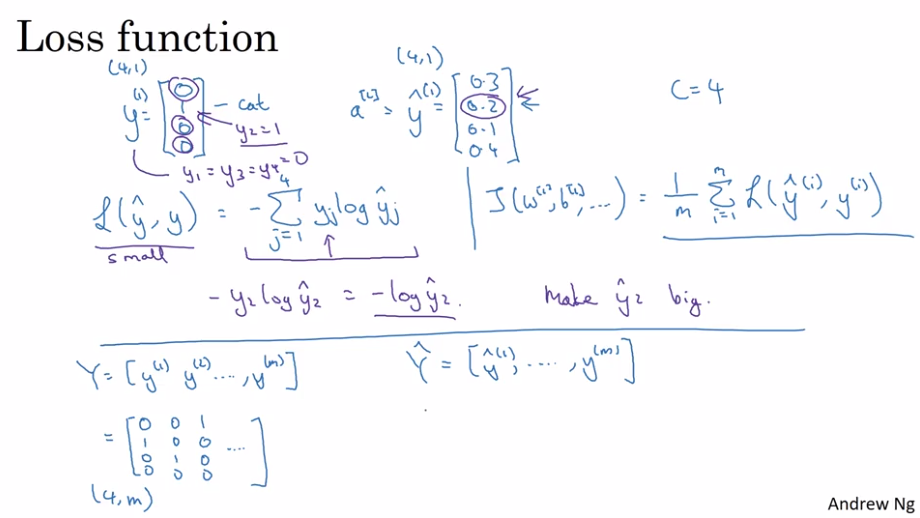 Loss function
(4,1)
y^(1) = [0 1 0 0] - cat
y₂=1
y₁ = y₃ = y₄ = 0
(4,1)
a^[L] = ŷ^(1) = [0.3 0.2 0.1 0.4]
C=4
L(ŷ, y) = - Σ_{j=1}^{4} yⱼ log ŷⱼ
small
J(w^[1], b^[1], ...) = 1/m Σ_{i=1}^{m} L(ŷ^(i), y^(i))
- y₂ log ŷ₂ = - log ŷ₂. Make ŷ₂ big.
Y = [y^(1) y^(2) ...., y^(m)]
= [0 0 1
1 0 0 ....
0 1 0
0 0 0]
(4,m)
Ŷ = [ŷ^(1), ...., y^(m)]
Andrew Ng